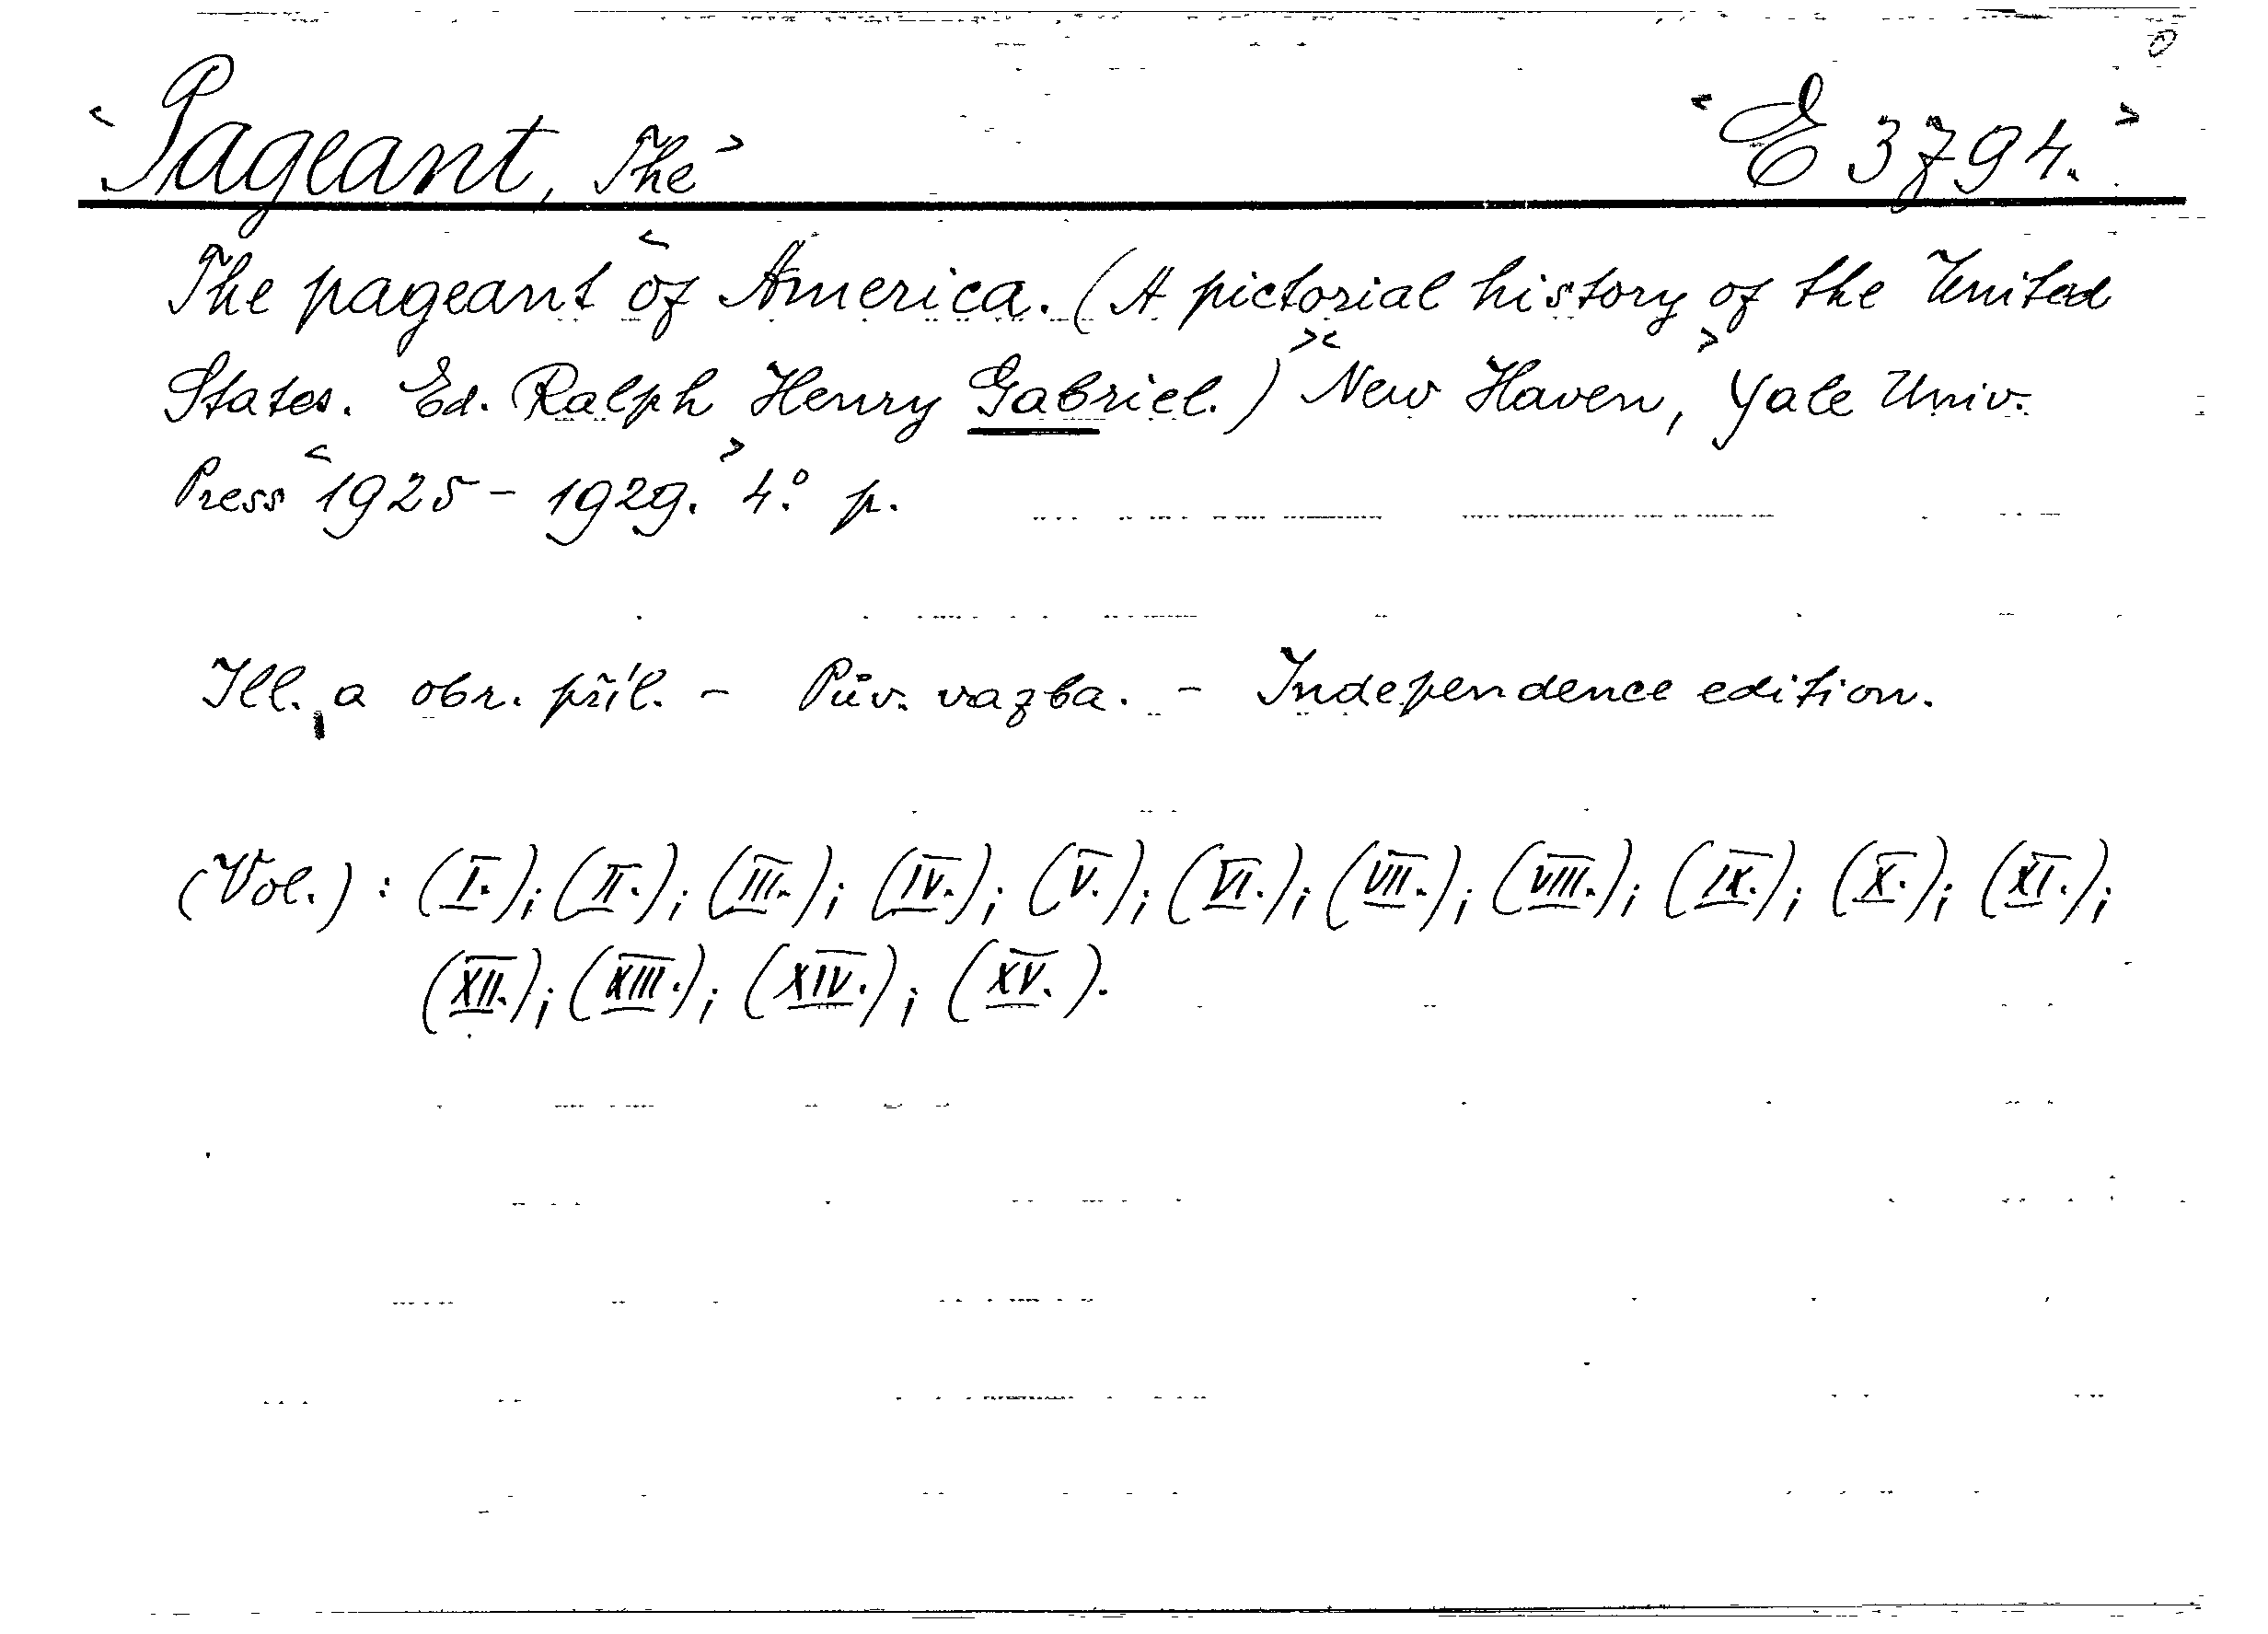 Pageant, The E 3794.
The pageant of America. (A pictorial history of the United
States. Ed. Ralph Henry Gabriel.) New Haven, Yale Univ.
Press 1925 - 1929. 4.° p.
Ill. a obr. příl. - Pův. vazba. - Independence edition.
(Vol.): (I.); (II.); (III.); (IV.); (V.); (VI.); (VII.); (VIII.); (IX.); (X.); (XI.);
(XII.); (XIII.); (XIV.); (XV.).